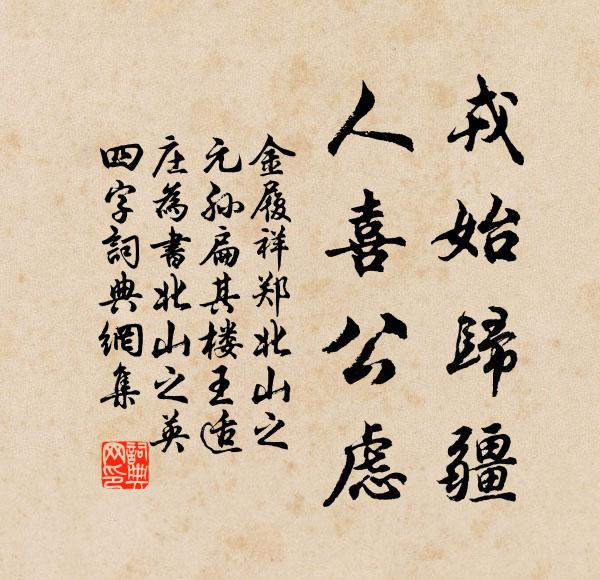 戎始歸疆
人喜公慮
金履祥郑北山之
元孙扁其楼王适
庄為書北山之英
四字詞典網集
詞典网印